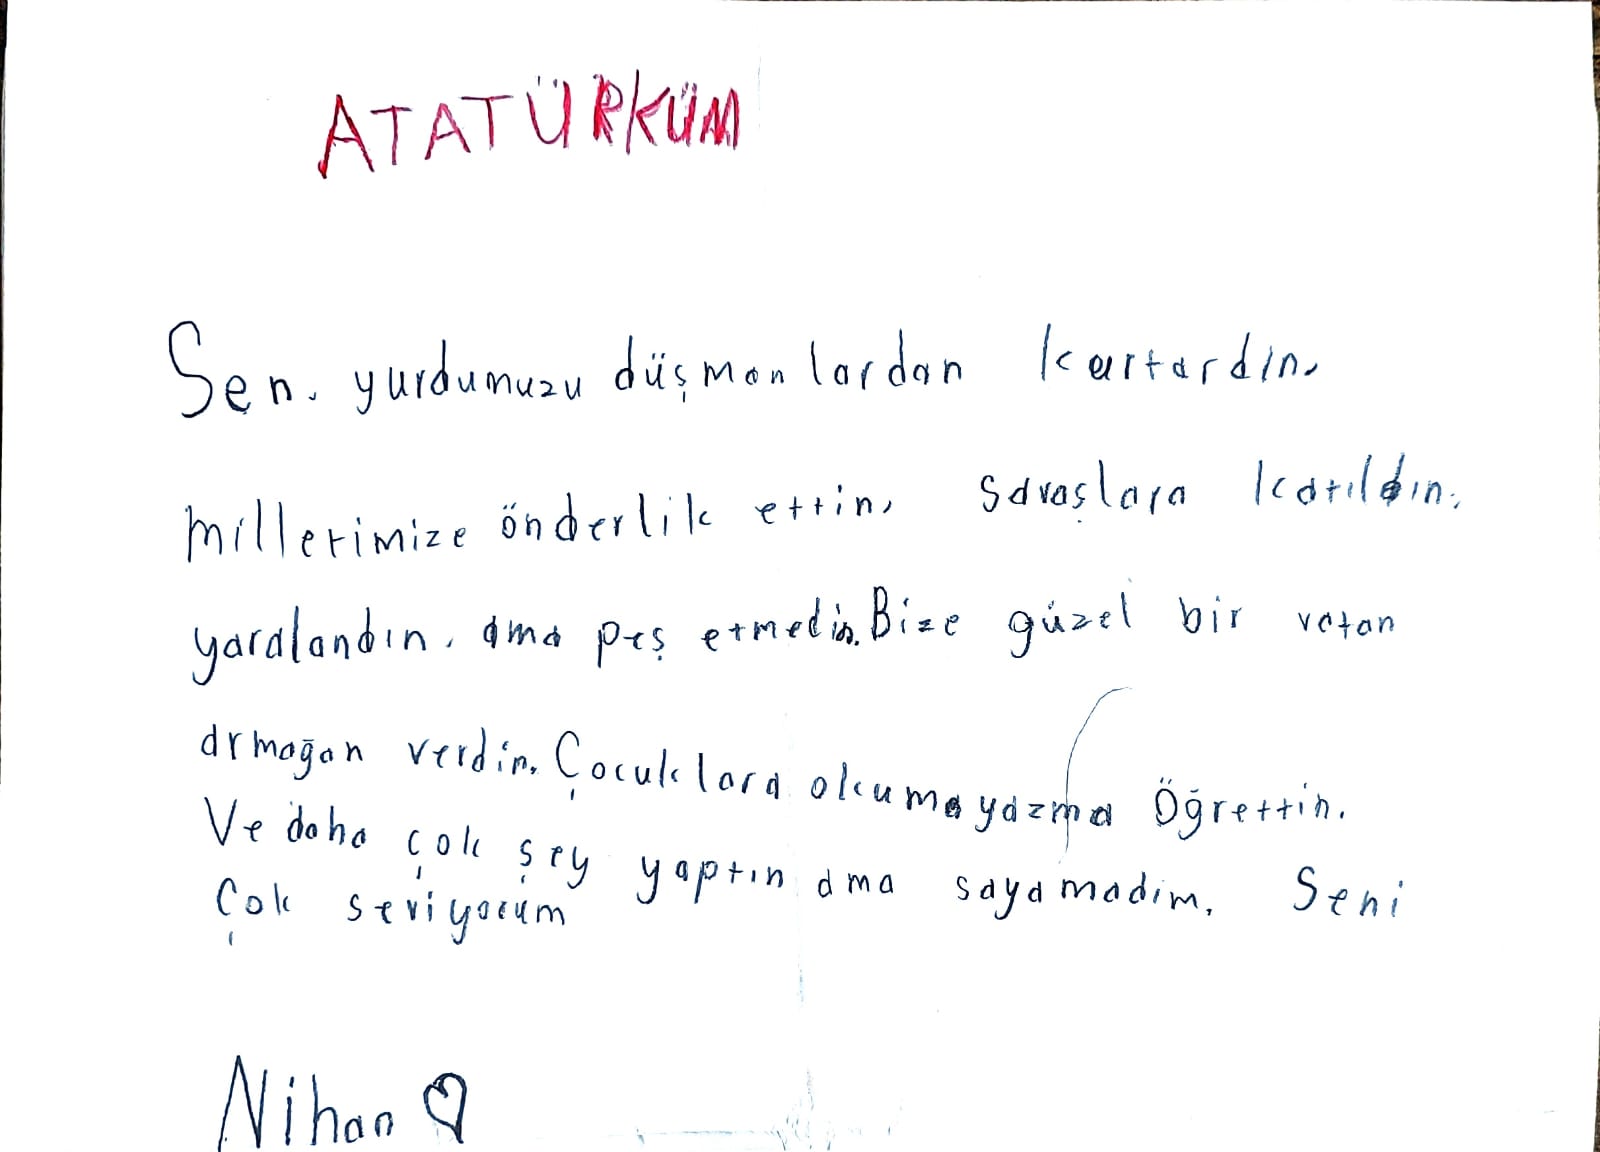 ATATÜRKÜM
Sen, yurdumuzu düşmanlardan kurtardın,
milletimize önderlik ettin, savaşlara katıldın,
yaralandın, ama pes etmedin. Bize güzel bir vatan
armağan verdin. Çocuklara okuma yazma Öğrettin.
Ve daha çok şey yaptın ama sayamadım. Seni
Çok seviyorum
Nihan ♡